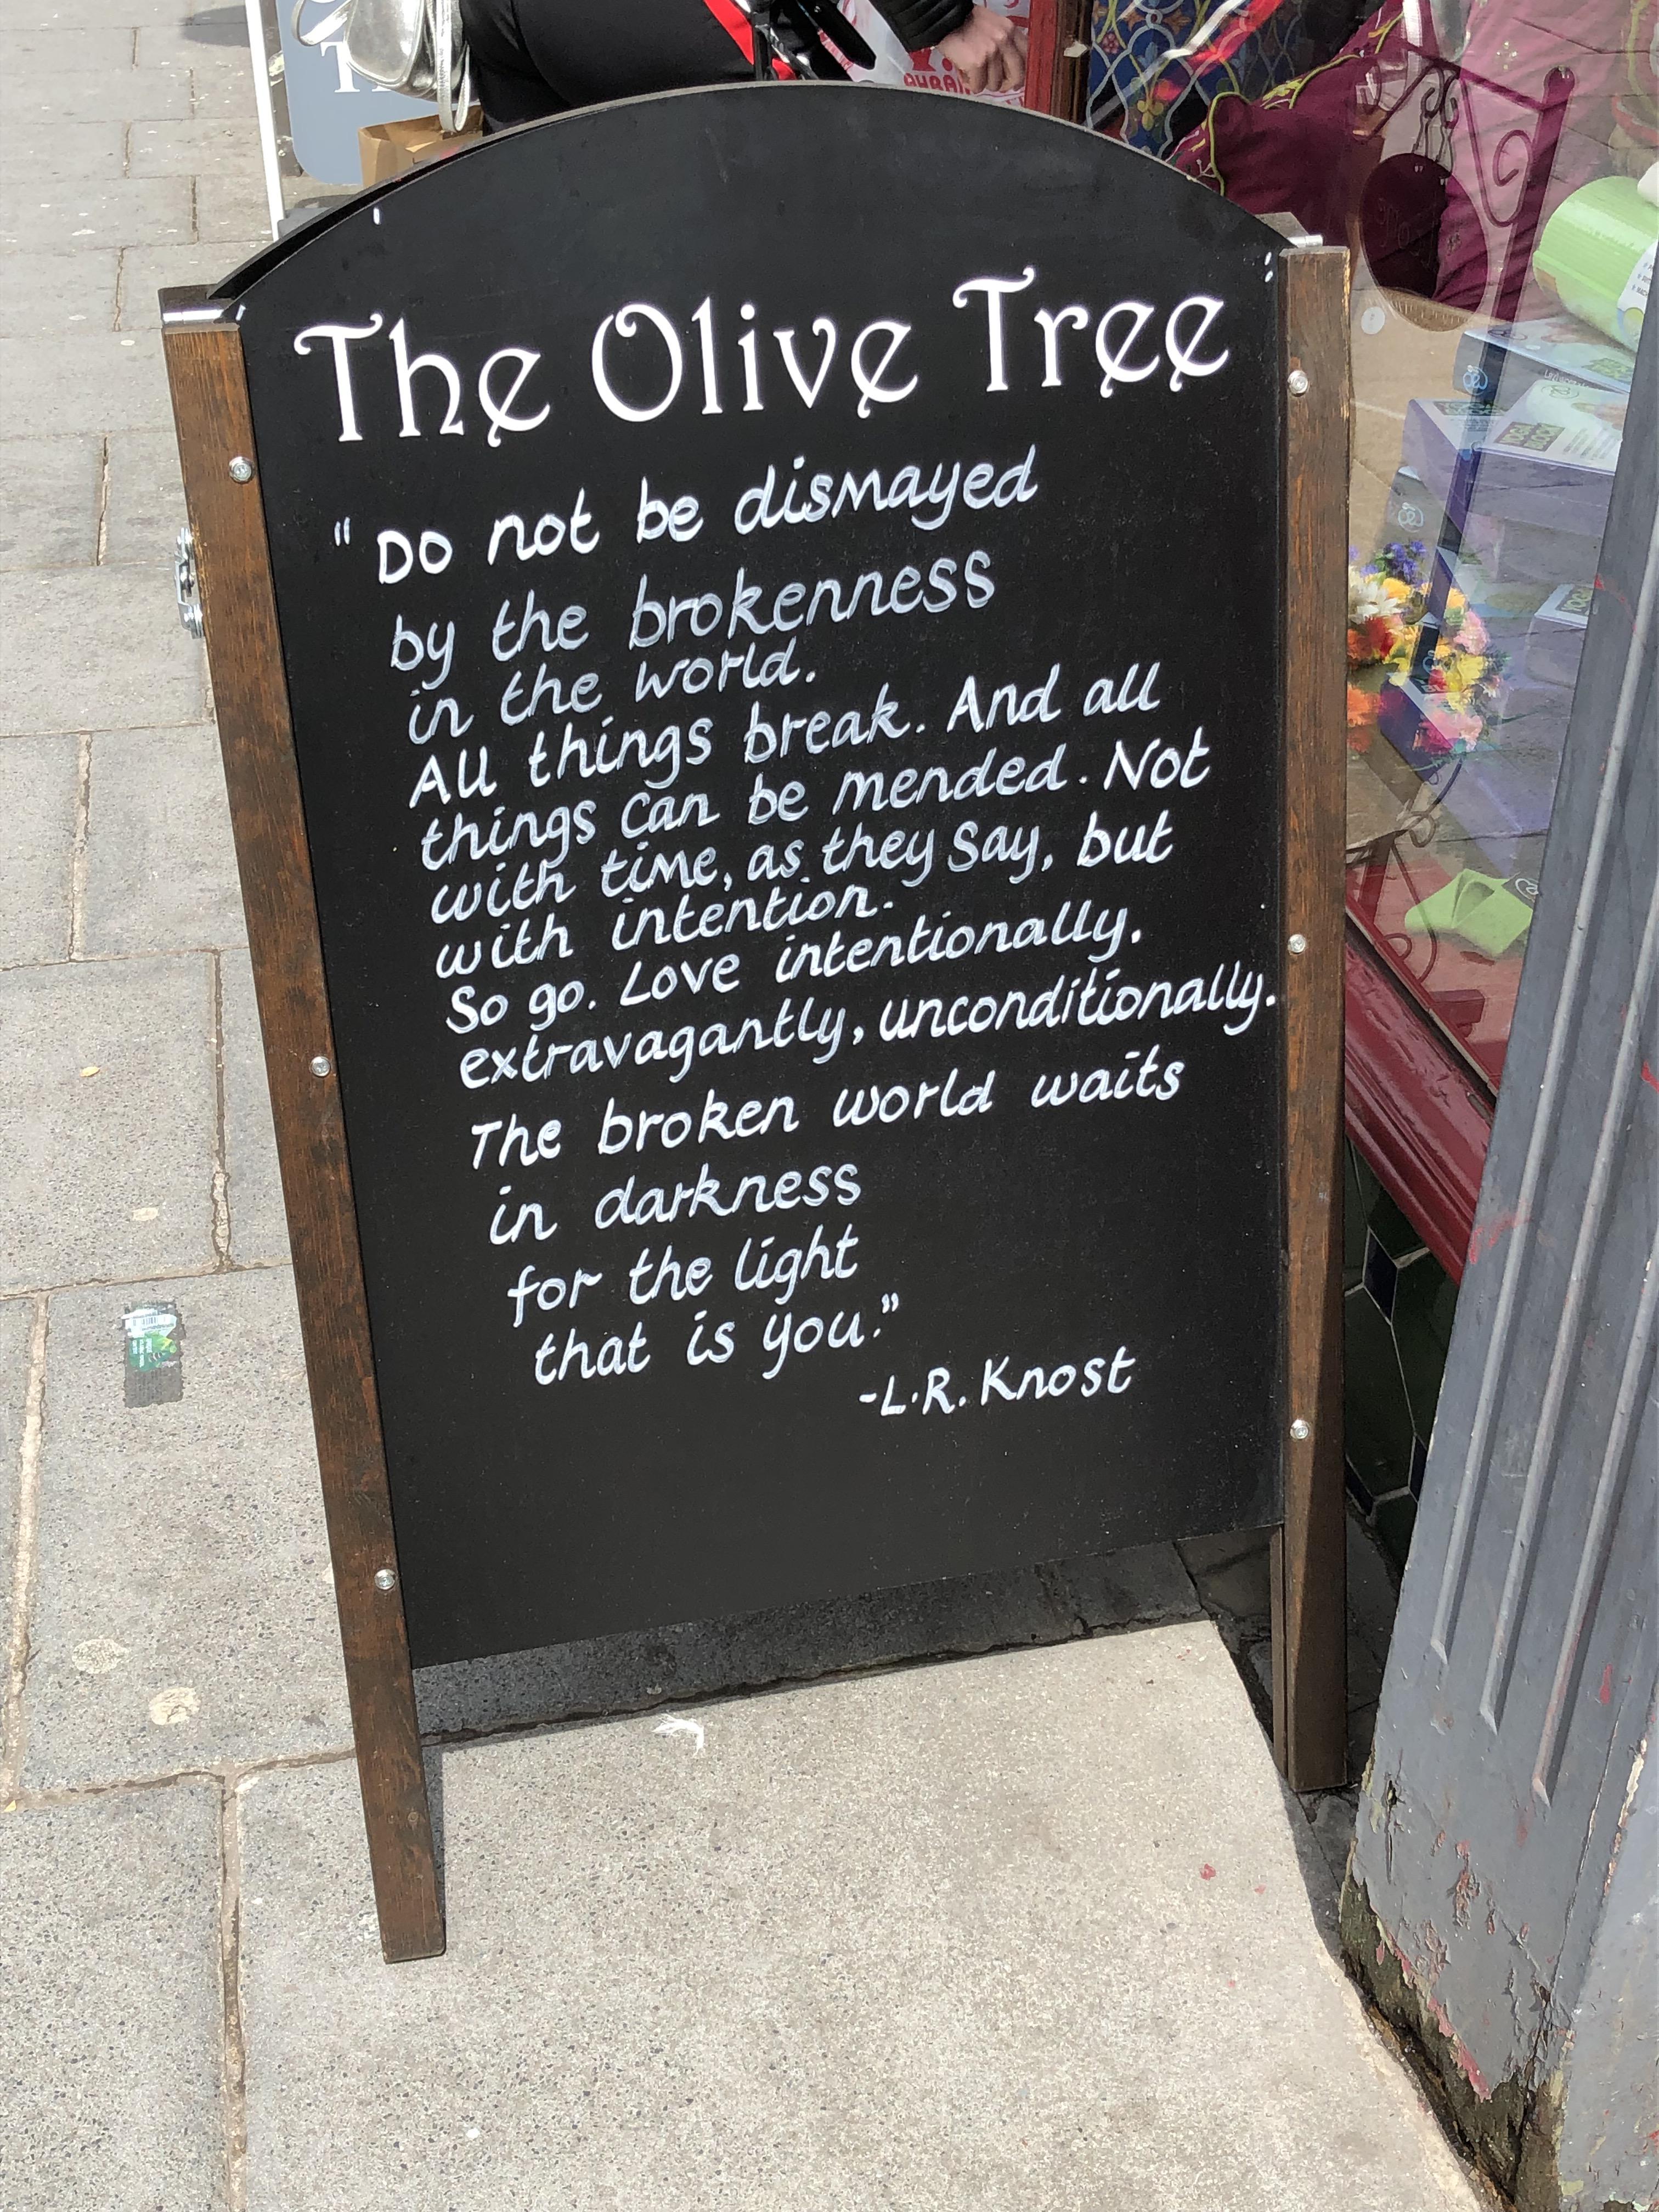 The Olive Tree
"Do not be dismayed
by the brokenness
in the world.
All things break. And all
things can be mended. Not
with time, as they say, but
with intention.
So go. Love intentionally,
extravagantly, unconditionally.
The broken world waits
in darkness
for the light
that is you."
-L.R. Knost